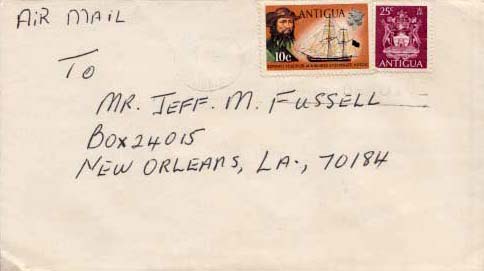 AIR MAIL
ANTIGUA
10c
25c
ANTIGUA
TO
MR. JEFF. M. FUSSELL
BOX 24015
NEW ORLEANS, LA., 70184